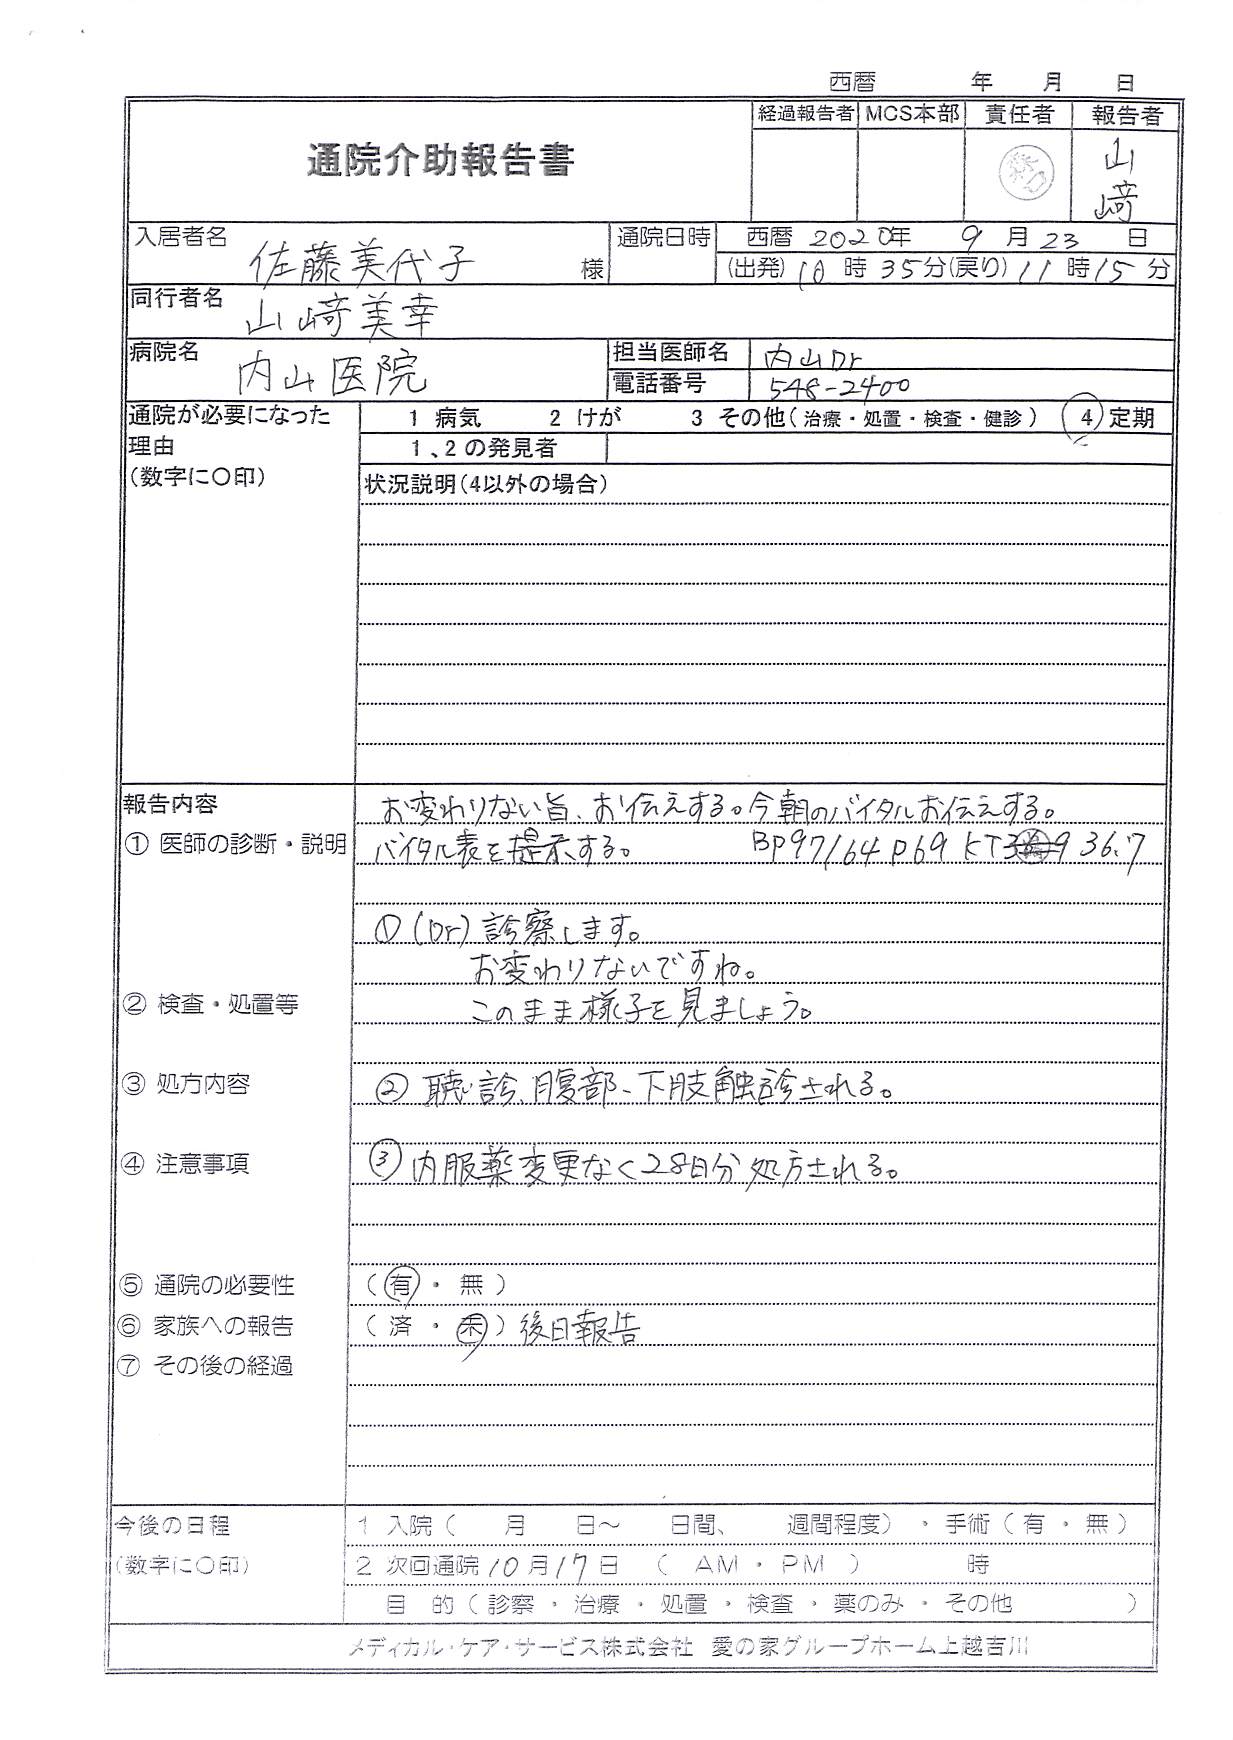 西暦　年　月　日
通院介助報告書
経過報告者 MCS本部 責任者 報告者
山﨑
入居者名 佐藤美代子 様
通院日時 西暦 2020年 9月23日
(出発) 10時35分(戻り) 11時15分
同行者名 山﨑美幸
病院名 内山医院
担当医師名 内山Dr
電話番号 548-2400
通院が必要になった
理由
(数字に〇印)
1 病気　2 けが　3 その他(治療・処置・検査・健診)　4 定期
1、2の発見者
状況説明(4以外の場合)
報告内容
お変わりない旨、お伝えする。今朝のバイタルお伝えする。
① 医師の診断・説明
バイタル表を提示する。　BP97/64 P69 KT 36.7
①(Dr)診察します。
お変わりないですね。
② 検査・処置等
このまま様子を見ましょう。
③ 処方内容
② 聴診、腹部、下肢触診される。
④ 注意事項
③ 内服薬変更なく28日分処方される。
⑤ 通院の必要性 (有・無)
⑥ 家族への報告 (済・未) 後日報告
⑦ その後の経過
今後の日程
(数字に〇印)
1 入院(　月　日〜　日間、　週間程度)・手術(有・無)
2 次回通院 10月17日 (AM・PM)　時
目 的(診察・治療・処置・検査・薬のみ・その他　)
メディカル・ケア・サービス株式会社 愛の家グループホーム上越吉川